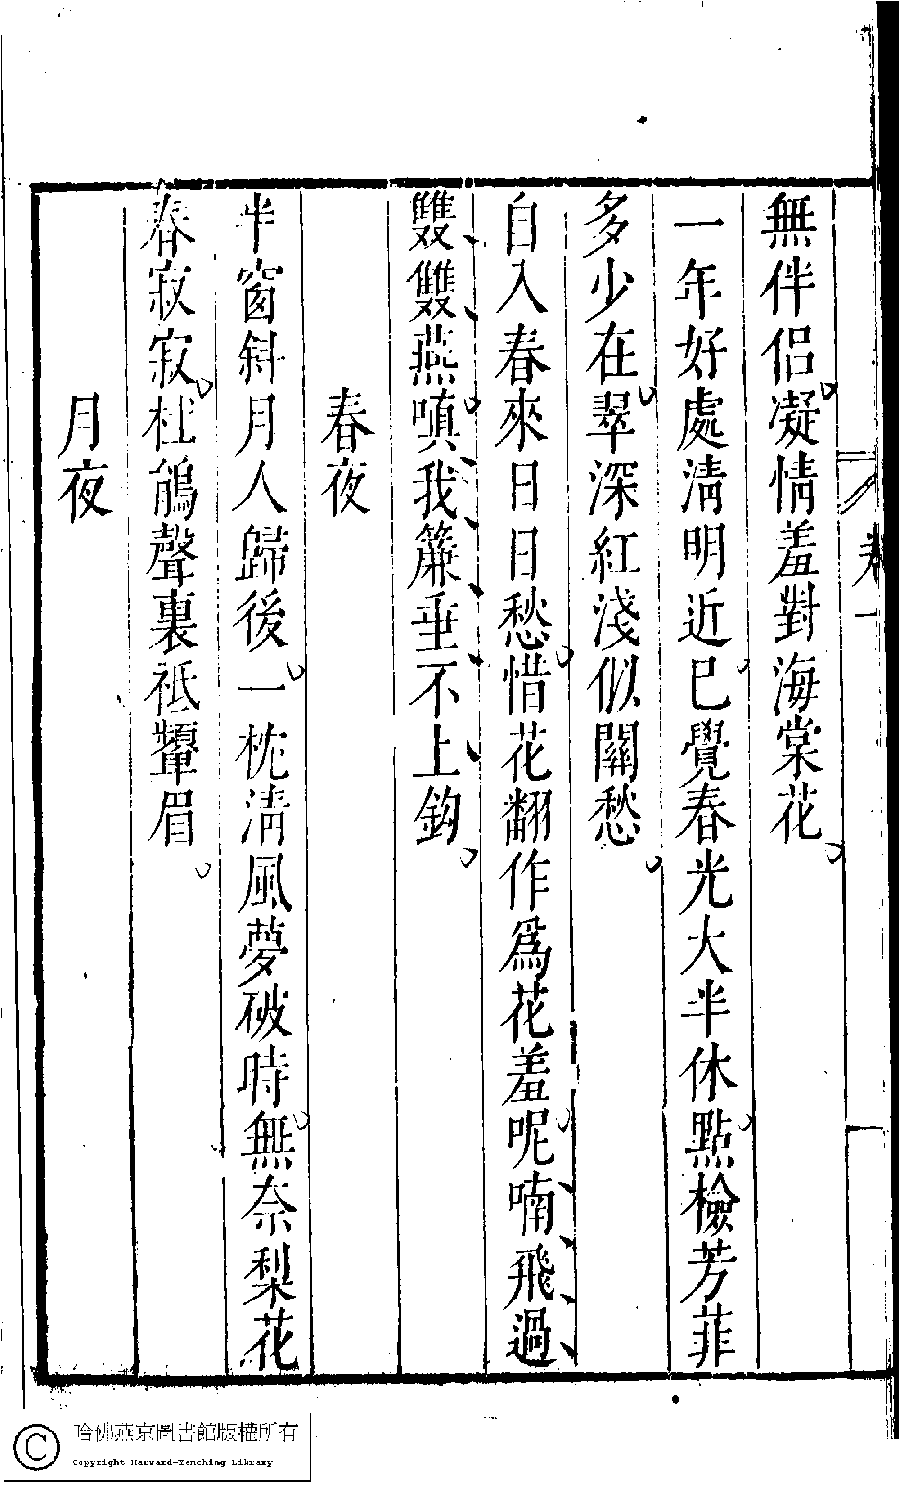 卷一
無伴侶凝情羞對海棠花
一年好處清明近巳覺春光大半休點檢芳菲
多少在翠深紅淺似關愁
自入春來日日愁惜花翻作爲花羞呢喃飛過
雙雙燕嗔我簾垂不上鈎
春夜
半窗斜月人歸後一枕清風夢破時無奈梨花
春寂寂杜鵑聲裏祇顰眉
月夜
哈佛燕京圖書館版權所有
Copyright Harvard-Yenching Library